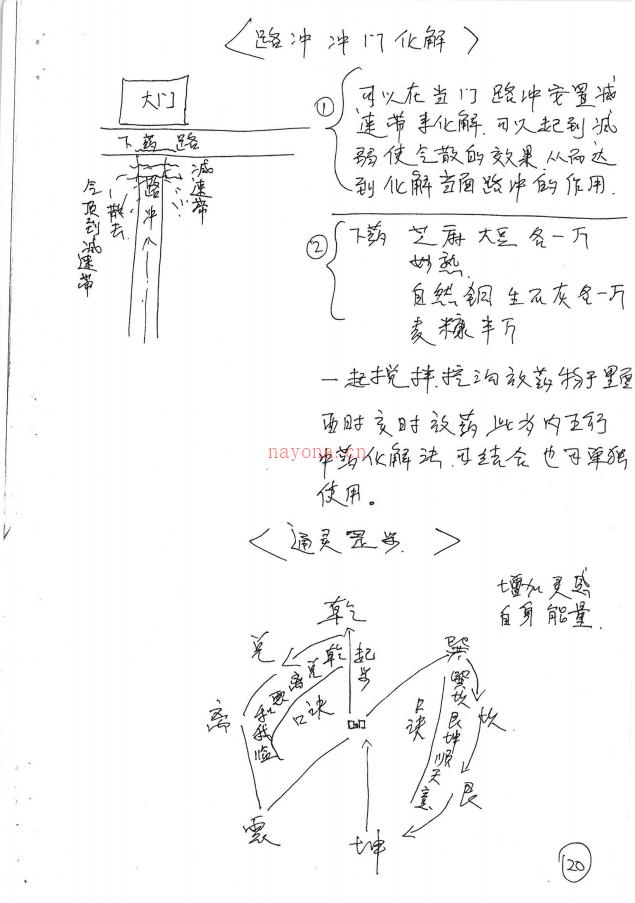 <路冲冲门化解>
大门
下药路
路冲
减速带
散去
气顶到减速带
① 可以在当门路冲安置减
速带来化解.可以起到减
弱使气散的效果.从而达
到化解当面路冲的作用.
② 下药 芝麻 大豆 各一斤
炒熟
自然铜 生石灰各一斤
麦糠半斤
一起搅拌.挖沟放药物于里面
酉时亥时放药 此为内五行
中药化解法.可结合也可单独
使用。
nayona.cn
<通灵罡步.>
增加灵感
自身能量.
乾
兑
离
震
起步
口诀
乾兑离震和我临
巽
坎
艮
坤
口诀
巽坎艮坤顺天意
20